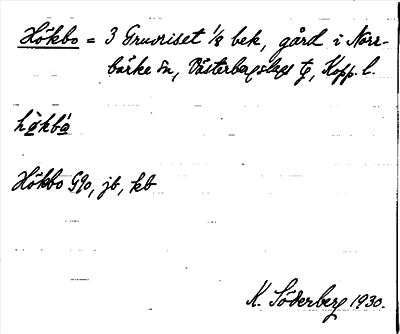 Hökbo = 3 Gruvriset 1/8 bek, gård i Norr-
bärke sn, Västerbergslags tg, Kopp. l.
hökbo
Hökbo G90, jb, kb
K. Söderberg 1930.